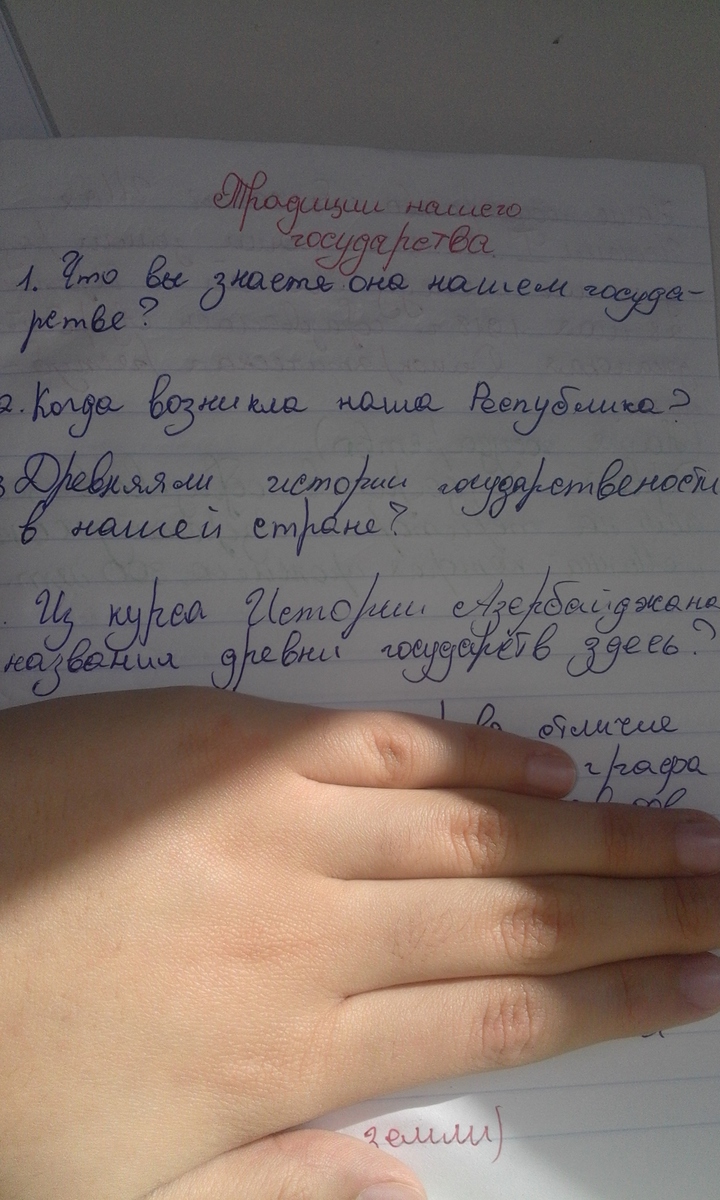 Традиции нашего
государства
1. Что вы знаете она нашем госуда-
рстве?
2. Когда возникла наша Республика?
3 Древняяли истории государствености
в нашей стране?
. Из курса Истории Азербайджана
названия древни государств здесь?
отличие
графа
земли)